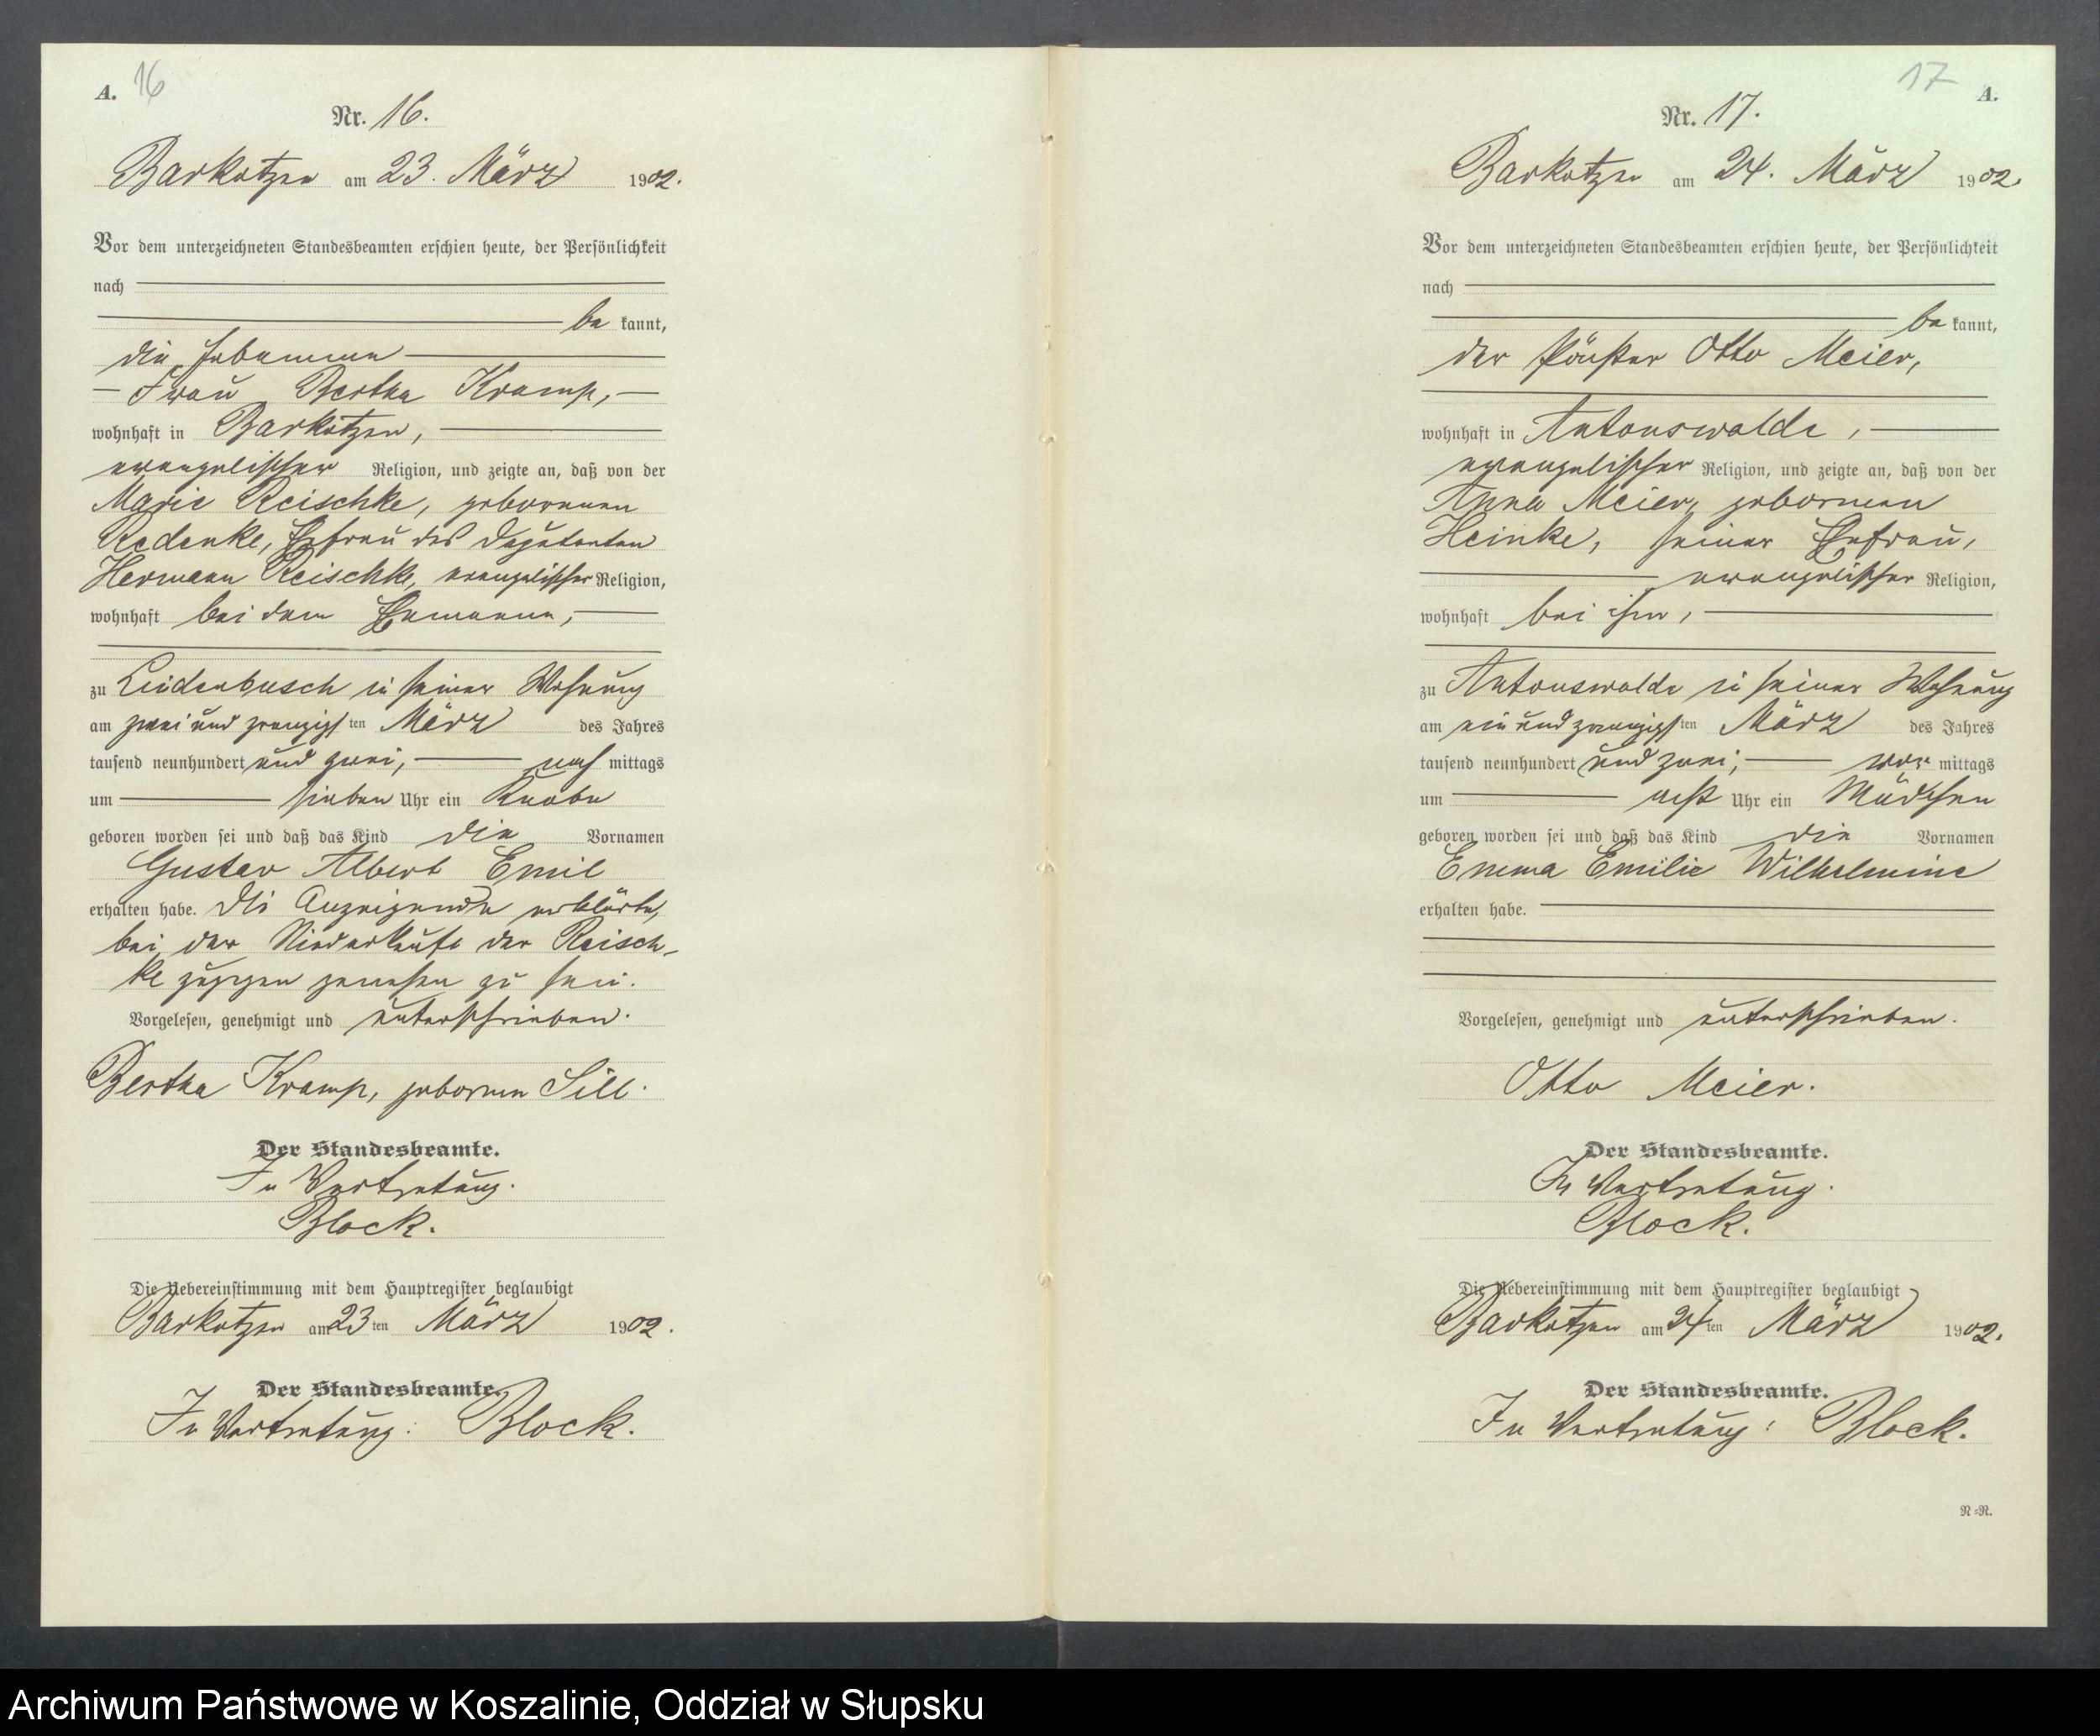 A. 16
Nr. 16.
Barkotzen am 23. März 1902.
Vor dem unterzeichneten Standesbeamten erschien heute, der Persönlichkeit
nach
be kannt,
die Hebamme
Frau Bertha Kramp,
wohnhaft in Barkotzen,
evangelischer Religion, und zeigte an, daß von der
Marie Reischke, geborenen
Redenke, Ehefrau des Deputanten
Hermann Reischke, evangelischer Religion,
wohnhaft bei dem Ehemanne,
zu Lindenbusch in seiner Wohnung
am zwei und zwanzigsten März des Jahres
tausend neunhundert und zwei, nach mittags
um sieben Uhr ein Knabe
geboren worden sei und daß das Kind die Vornamen
Gustav Albert Emil
erhalten habe. Die Anzeigende erklärte,
bei der Niederkunft der Reisch-
ke zugegen gewesen zu sein.
Vorgelesen, genehmigt und unterschrieben.
Bertha Kramp, geborene Sill.
Der Standesbeamte.
In Vertretung.
Block.
Die Uebereinstimmung mit dem Hauptregister beglaubigt
Barkotzen am 23ten März 1902.
Der Standesbeamte.
In Vertretung: Block.
17 A.
Nr. 17.
Barkotzen am 24. März 1902.
Vor dem unterzeichneten Standesbeamten erschien heute, der Persönlichkeit
nach
be kannt,
der Otto Meier,
wohnhaft in Antonswalde,
evangelischer Religion, und zeigte an, daß von der
Anna Meier, geborenen
Heinke, seiner Ehefrau,
evangelischer Religion,
wohnhaft bei ihm,
zu Antonswalde in seiner Wohnung
am ein und zwanzigsten März des Jahres
tausend neunhundert und zwei, vor mittags
um acht Uhr ein Mädchen
geboren worden sei und daß das Kind die Vornamen
Emma Emilie Wilhelmine
erhalten habe.
Vorgelesen, genehmigt und unterschrieben.
Otto Meier.
Der Standesbeamte.
In Vertretung.
Block.
Die Uebereinstimmung mit dem Hauptregister beglaubigt
Barkotzen am 24ten März 1902.
Der Standesbeamte.
In Vertretung: Block.
N=N.
Archiwum Państwowe w Koszalinie, Oddział w Słupsku